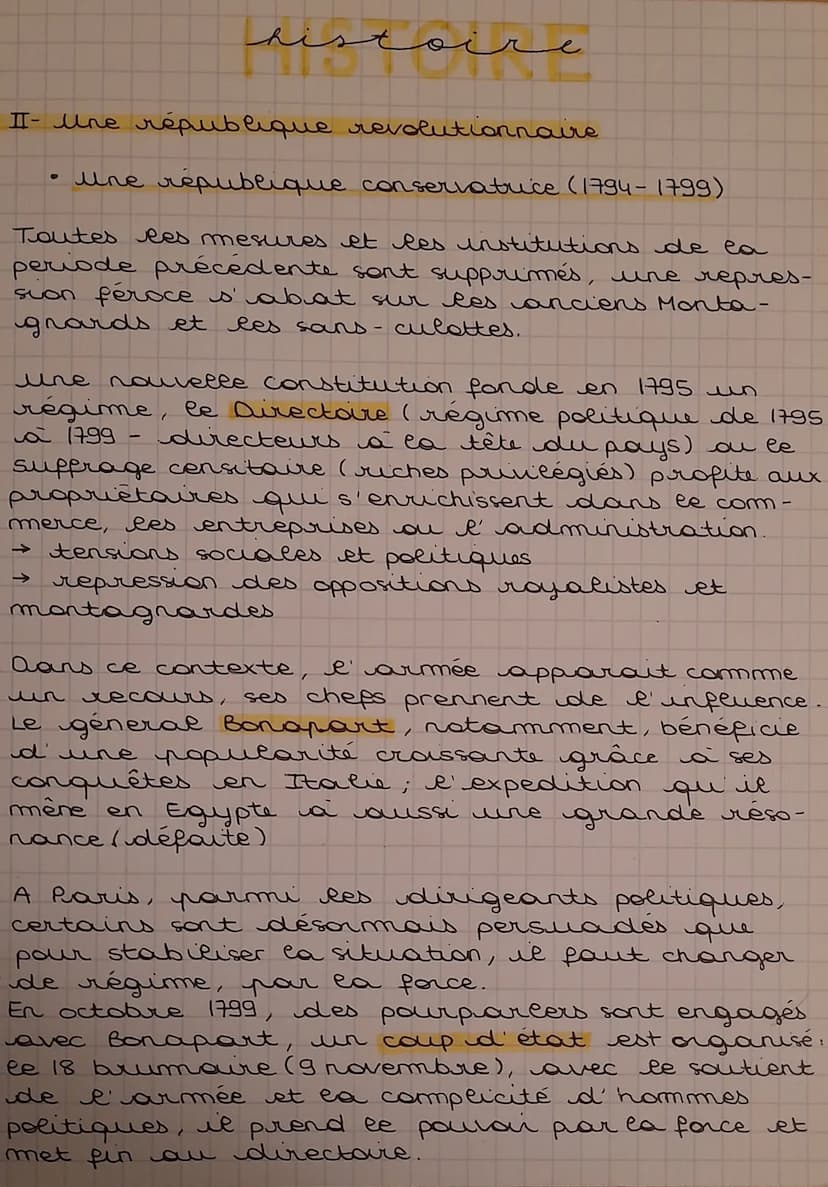 HISTOIRE
histoire
II- Une république revolutionnaire
• Une république conservatrice (1794-1799)
Toutes les mesures et les institutions de la
periode précédente sont supprimés, une repres-
sion féroce s'abat sur les anciens Monta-
gnards et les sans-culottes.
Une nouvelle constitution fonde en 1795 un
régime, le Directoire (régime politique de 1795
à 1799 - directeurs à la tête du pays) ou le
suffrage censitaire (riches privilégiés) profite aux
propriètaires qui s'enrichissent dans le com-
merce, les entreprises ou l'administration.
→ tensions sociales et politiques
→ repression des oppositions royalistes et
montagnardes
Dans ce contexte, l'armée apparait comme
un recours, ses chefs prennent de l'influence.
Le géneral Bonapart, notamment, bénéficie
d'une popularité croissante grâce à ses
conquêtes en Italie ; l'expedition qu'il
mène en Egypte à aussi une grande réso-
nance (défaite)
A Paris, parmi les dirigeants politiques,
certains sont désormais persuadés que
pour stabiliser la situation, il faut changer
de régime, par la force.
En octobre 1799, des pourparlers sont engagés
avec Bonapart, un coup d'état est organisé :
le 18 brumaire (9 novembre), avec le soutient
de l'armée et la complicité d'hommes
politiques, il prend le pouvoir par la force et
met fin au directoire.